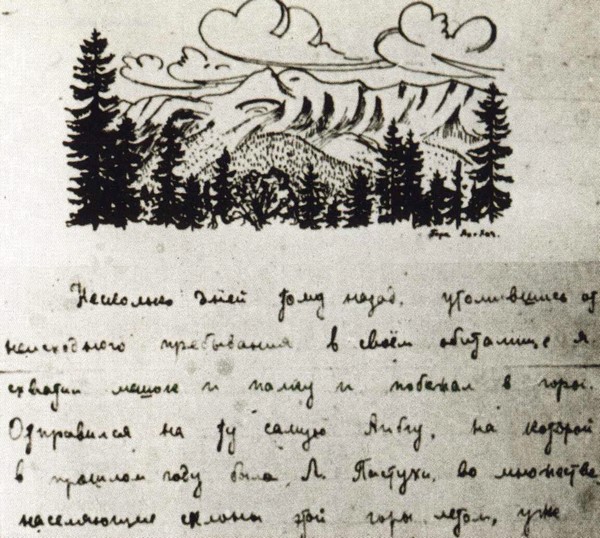 Гора Ах-Хач.
Несколько дней тому назад, утомившись от
неисходного пребывания в своём обиталище я
схватил мешок и палку и побежал в горы.
Отправился на ту самую Аибгу, на которой
в прошлом году была Л. Пастухи, во множестве
населяющие склоны этой горы летом, уже